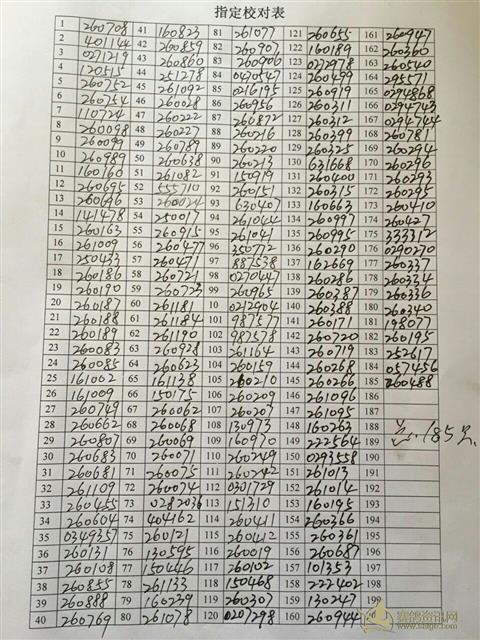 指定校对表
1 260708 41 160823 81 261077 121 260655 161 260947
2 401144 42 260859 82 260907 122 160189 162 260360
3 0271219 43 260860 83 260906 123 0272978 163 260540
4 120515 44 251278 84 0470547 124 260499 164 295571
5 260752 45 261092 85 0216195 125 260919 165 0294868
6 260754 46 260028 86 260956 126 260311 166 0294743
7 110724 47 260222 87 260872 127 260312 167 0294744
8 260098 48 260227 88 260216 128 260399 168 260781
9 260099 49 260789 89 260220 129 260325 169 260294
10 260989 50 260638 90 260213 130 631668 170 260296
11 160160 51 261082 91 150919 131 260400 171 260293
12 260695 52 555710 92 260151 132 260315 172 260295
13 260696 53 260024 93 630407 133 160663 173 260410
14 141478 54 250017 94 261044 134 260997 174 260427
15 260163 55 260915 95 261041 135 260995 175 333312
16 261009 56 260477 96 350772 136 260290 176 0290270
17 250433 57 260471 97 887538 137 162669 177 260337
18 260186 58 260721 98 0270447 138 260286 178 260334
19 260190 59 260723 99 260965 139 260387 179 260336
20 260187 60 261181 100 0212904 140 260388 180 260340
21 260188 61 261184 101 987577 141 260171 181 198077
22 260189 62 261190 102 987578 142 260720 182 260195
23 260083 63 260928 103 261164 143 260719 183 252617
24 260085 64 260623 104 260159 144 260268 184 057456
25 161002 65 161138 105 260210 145 260266 185 260488
26 161009 66 150175 106 260209 146 261096 186
27 260749 67 260062 107 260207 147 261095 187
28 260662 68 260068 108 130973 148 160263 188
29 260807 69 260069 109 160970 149 222564 189 185
30 260683 70 260071 110 260249 150 0293558 190
31 260681 71 260075 111 260242 151 261013 191
32 261109 72 260074 112 0301729 152 261014 192
33 260455 73 0282036 113 151310 153 160195 193
34 260604 74 404162 114 260411 154 260366 194
35 0349357 75 260121 115 260412 155 260361 195
36 260131 76 130595 116 260019 156 260687 196
37 260108 77 150446 117 260102 157 101353 197
38 260855 78 261133 118 150468 158 222402 198
39 260888 79 160239 119 260307 159 130247 199
40 260769 80 261078 120 0207298 160 260944